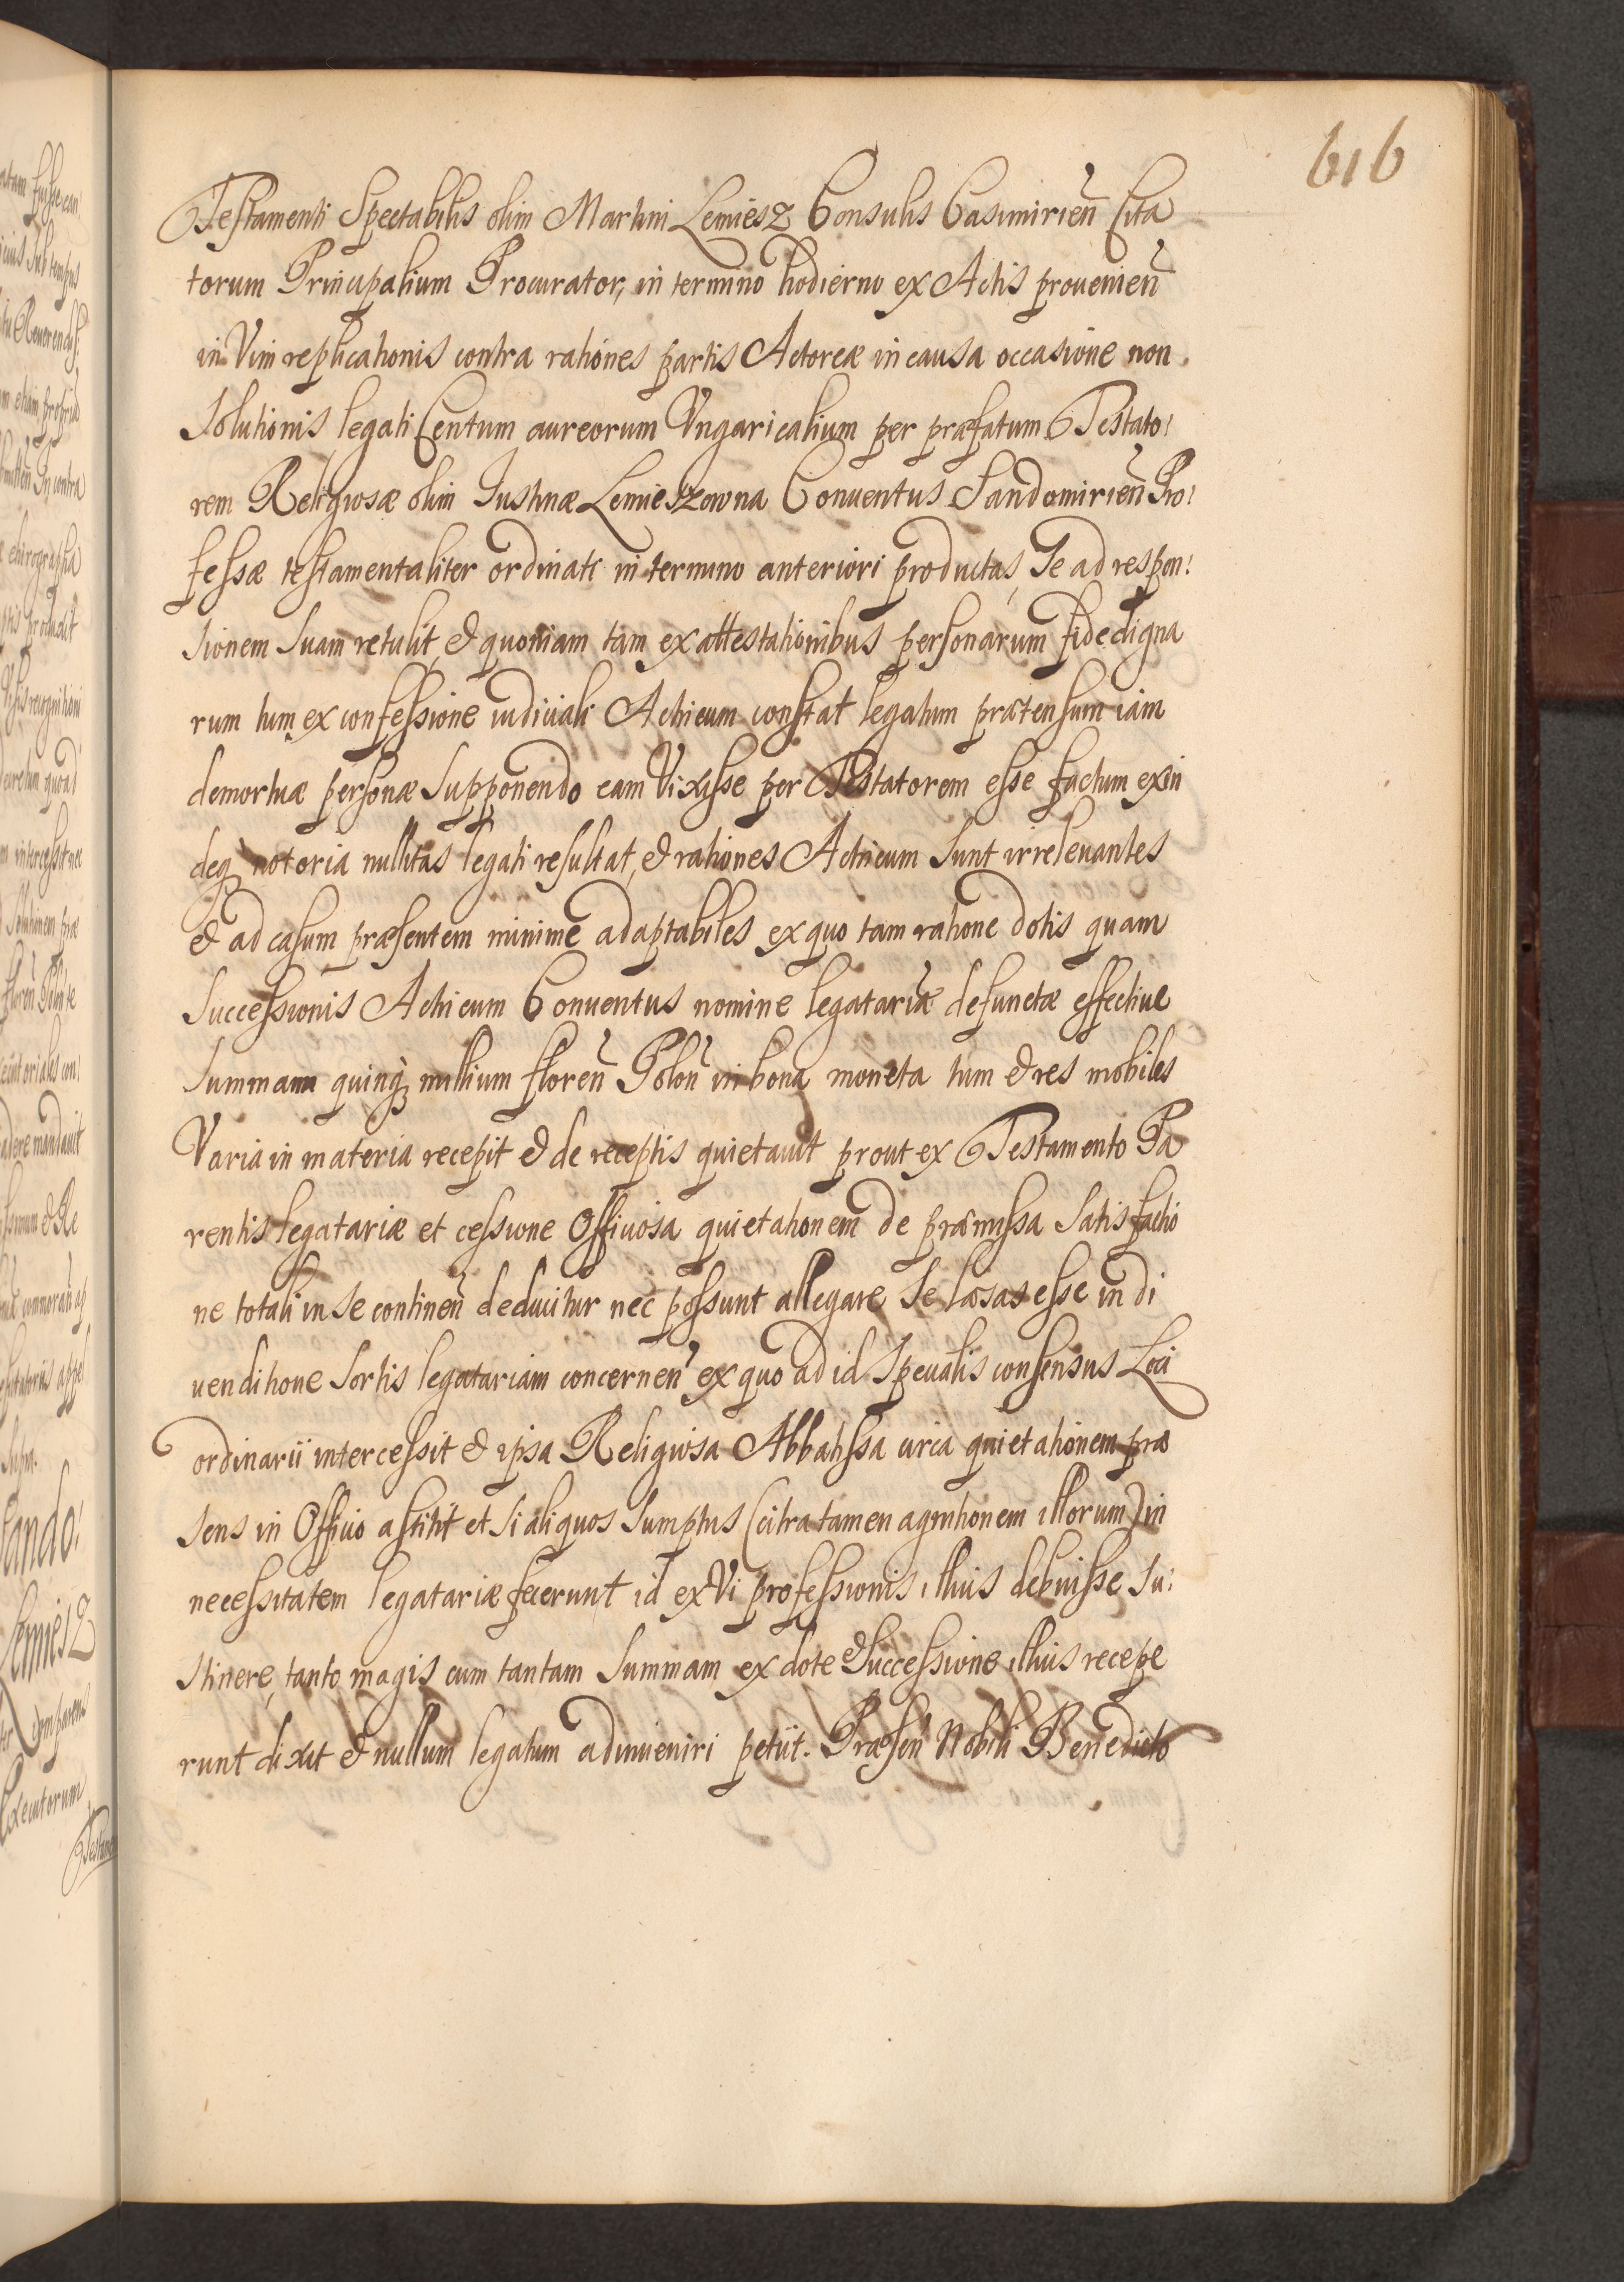 616
Testamenti Spectabilis olim Martini Lemiesz Consulis Casimirien̄ Cita
torum Principalium Procurator, in termino hodierno ex Actis prouenien̄
in Vim replicationis contra rationes partis Actoreæ in causa occasione non
Solutionis legati Centum aureorum Vngaricalium per præfatum Testato:
rem Religiosæ olim Iustinæ Lemieszowna Conuentus Sandomirien̄ Pro:
fessæ testamentaliter ordinati in termino anteriori productas, Se ad respon:
sionem Suam retulit, & quoniam tam ex attestationibus personarum fidedigna
rum tum ex confessione iudiciali Actricum constat legatum prætensum iam
demortuæ personæ Supponendo eam Vixisse per Testatorem esse factum exin
deq notoria nullitas legati resultat, & rationes Actricum Sunt irreleuantes
& ad casum præsentem minime adaptabiles ex quo tam ratione dotis quam
Successionis Actricum Conuentus nomine legatariæ defunctæ effectiue
Summam quinq millium floren̄ Polon̄ in bona moneta tum & res mobiles
Varia in materia recepit & de receptis quietauit prout ex Testamento Pa
rentis legatariæ et cessione Officiosa quietationem de præmissa Satisfactio
ne totali in se continen̄ deducitur nec possunt allegare Se læsas esse in di
uenditione Sortis legatariam concernen̄ ex quo ad id Specialis consensus Loci
ordinarii intercessit & ipsa Religiosa Abbatissa circa quietationem præ
sens in Officio astitit et Si aliquos Sumptus (citra tamen agnitionem illorum) in
necessitatem legatariæ fecerunt id ex Vi professionis illius debuisse Su:
stinere, tanto magis cum tantam Summam ex dote & Successione illius recepe
runt dixit & nullum legatum adinueniri petiit. Præsen̄ Nobili Benedicto